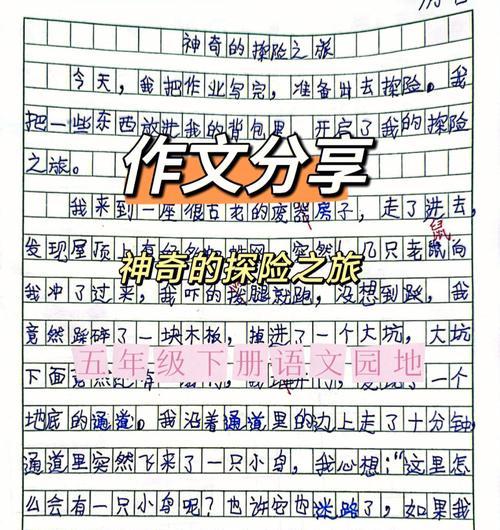 神奇的探险之旅
今天，我把作业写完，准备出去探险。我
把一些东西放进我的背包里，开启了我的探险
之旅。
作文分享
我来到一座很古老的房子，走了进去，
鼠
发现屋顶上有 网，突然 几只老鼠向
神奇的探险之旅
我冲了过来，我吓的 腿就跑，没想到 ，我
竟然踩碎了一块木板，掉进了一个大坑，大坑
五年级下册语文园地
下面竟然 一个
地底的通道。我沿着通道里的边上走了十分钟，
通道里突然飞来了一只小鸟，我心想：“这里怎
么会有一只小鸟呢？也许它也迷路了，如果我